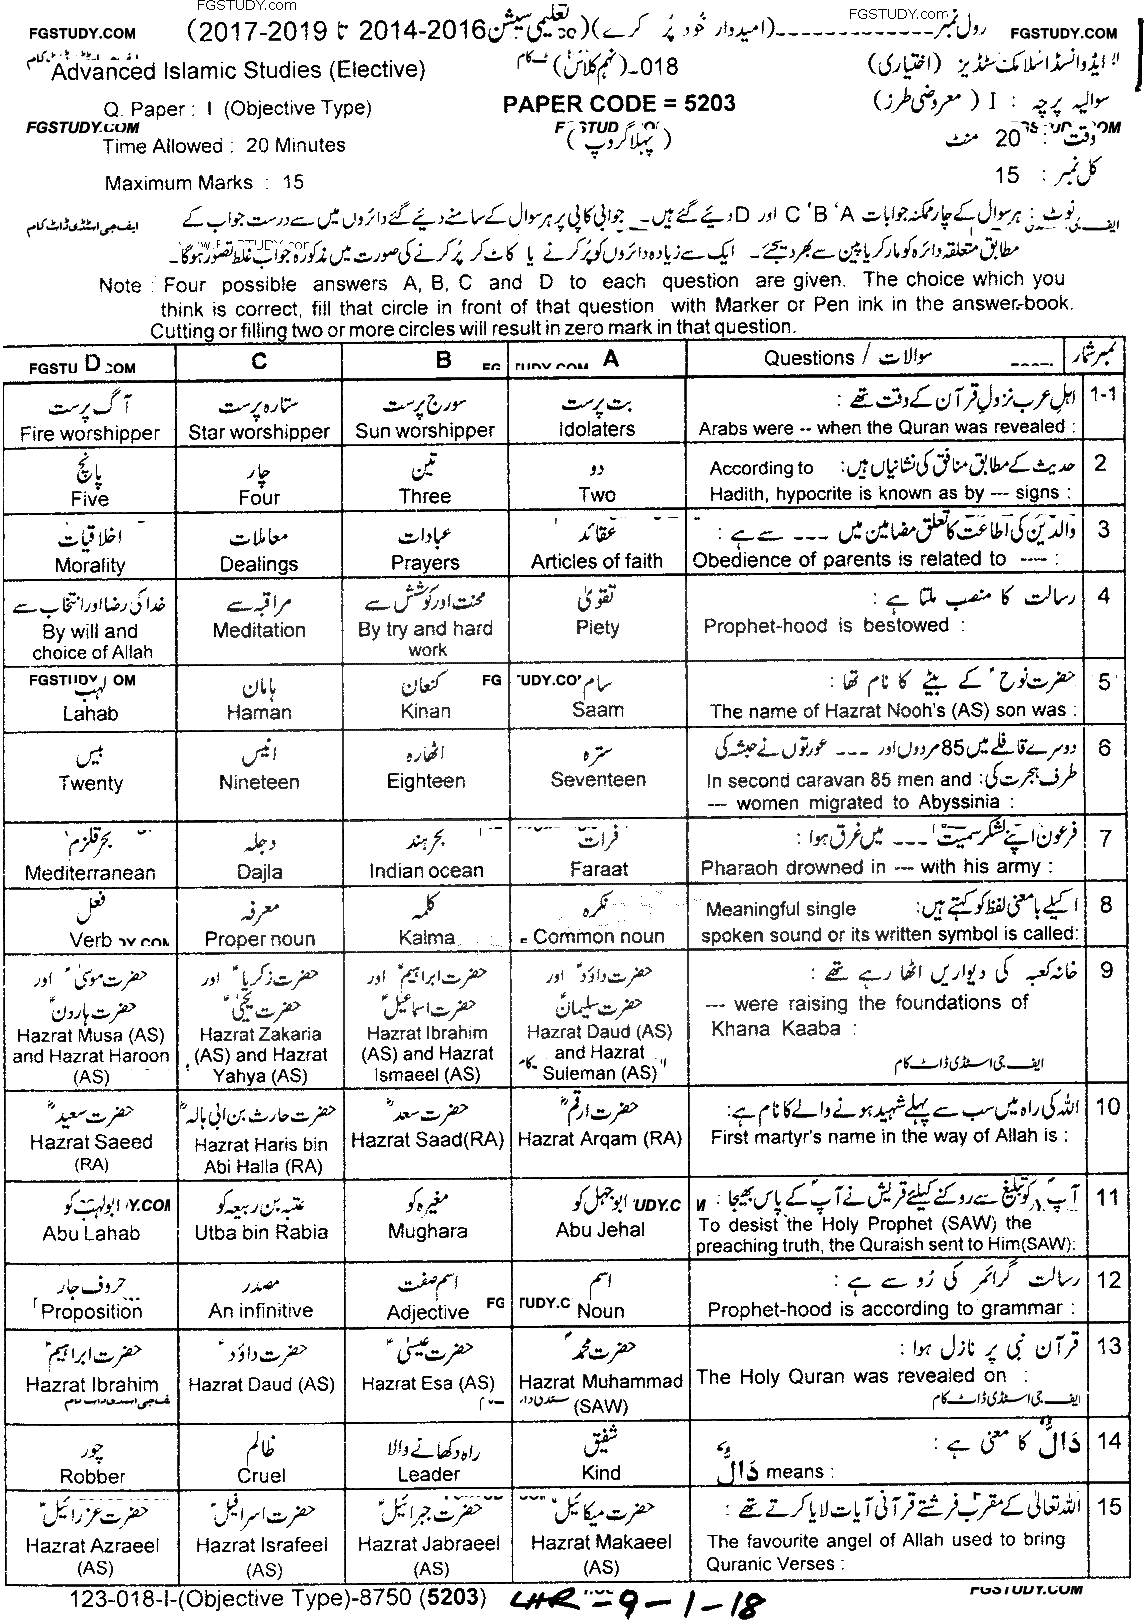 FGSTUDY.com FGSTUDY.com
FGSTUDY.COM (2017-2019 تا 2014-2016 تعلیمی سیشن) (امیدوار خود پُر کرے) رول نمبر FGSTUDY.COM
Advanced Islamic Studies (Elective) 018-(نہم کلاس) ایڈوانسڈ اسلامک سٹڈیز (اختیاری)
Q. Paper : I (Objective Type) PAPER CODE = 5203 سوالیہ پرچہ : I (معروضی طرز)
FGSTUDY.COM
Time Allowed : 20 Minutes (پہلا گروپ) وقت : 20 منٹ
Maximum Marks : 15 کل نمبر : 15
نوٹ : ہر سوال کے چار ممکنہ جوابات A، B، C اور D دیئے گئے ہیں۔ جوابی کاپی پر ہر سوال کے سامنے دیئے گئے دائروں میں سے درست جواب کے ایف جی اسٹڈی ڈاٹ کام
مطابق متعلقہ دائرہ کو مارکر یا پین سے بھر دیجئے۔ ایک سے زیادہ دائروں کو پُر کرنے یا کاٹ کر پُر کرنے کی صورت میں مذکورہ جواب غلط تصور ہوگا۔
Note : Four possible answers A, B, C and D to each question are given. The choice which you
think is correct, fill that circle in front of that question with Marker or Pen ink in the answer-book.
Cutting or filling two or more circles will result in zero mark in that question.
D C B A Questions / سوالات نمبر شمار
آگ پرست ستارہ پرست سورج پرست بت پرست اہلِ عرب نزولِ قرآن کے وقت تھے : 1-1
Fire worshipper Star worshipper Sun worshipper Idolaters Arabs were -- when the Quran was revealed :
پانچ چار تین دو According to حدیث کے مطابق منافق کی نشانیاں ہیں: 2
Five Four Three Two Hadith, hypocrite is known as by --- signs :
اخلاقیات معاملات عبادات عقائد والدین کی اطاعت کا تعلق مضامین میں --- سے ہے : 3
Morality Dealings Prayers Articles of faith Obedience of parents is related to ---- :
خدا کی رضا اور انتخاب سے مراقبہ سے محنت اور کوشش سے تقویٰ رسالت کا منصب ملتا ہے : 4
By will and choice of Allah Meditation By try and hard work Piety Prophet-hood is bestowed :
لہب ہامان کنعان سام حضرت نوحؑ کے بیٹے کا نام تھا : 5
Lahab Haman Kinan Saam The name of Hazrat Nooh's (AS) son was :
بیس انیس اٹھارہ سترہ دوسرے قافلے میں 85 مردوں اور --- عورتوں نے حبشہ کی 6
Twenty Nineteen Eighteen Seventeen In second caravan 85 men and طرف ہجرت کی:
--- women migrated to Abyssinia :
بحر قلزم دجلہ بحر ہند فرات فرعون اپنے لشکر سمیت --- میں غرق ہوا : 7
Mediterranean Dajla Indian ocean Faraat Pharaoh drowned in --- with his army :
فعل معرفہ کلمہ نکرہ Meaningful single اکیلے بامعنی لفظ کو کہتے ہیں: 8
Verb Proper noun Kalma Common noun spoken sound or its written symbol is called:
حضرت موسیٰؑ اور حضرت ہارونؑ حضرت زکریاؑ اور حضرت یحییٰؑ حضرت ابراہیمؑ اور حضرت اسماعیلؑ حضرت داؤدؑ اور حضرت سلیمانؑ خانہ کعبہ کی دیواریں اٹھا رہے تھے : 9
Hazrat Musa (AS) and Hazrat Haroon (AS) Hazrat Zakaria (AS) and Hazrat Yahya (AS) Hazrat Ibrahim (AS) and Hazrat Ismaeel (AS) Hazrat Daud (AS) and Hazrat Suleman (AS) --- were raising the foundations of Khana Kaaba :
ایف جی اسٹڈی ڈاٹ کام
حضرت سعیدؓ حضرت حارث بن ابی ہالہؓ حضرت سعدؓ حضرت ارقمؓ اللہ کی راہ میں سب سے پہلے شہید ہونے والے کا نام ہے: 10
Hazrat Saeed (RA) Hazrat Haris bin Abi Halla (RA) Hazrat Saad(RA) Hazrat Arqam (RA) First martyr's name in the way of Allah is :
ابولہب کو عتبہ بن ربیعہ کو مغیرہ کو ابوجہل کو آپؐ کو تبلیغ سے روکنے کیلئے قریش نے آپؐ کے پاس بھیجا : 11
Abu Lahab Utba bin Rabia Mughara Abu Jehal To desist the Holy Prophet (SAW) the
preaching truth, the Quraish sent to Him(SAW):
حروف جار مصدر اسم صفت اسم رسالت گرائمر کی رُو سے ہے : 12
Proposition An infinitive Adjective Noun Prophet-hood is according to grammar :
حضرت ابراہیمؑ حضرت داؤدؑ حضرت عیسیٰؑ حضرت محمدؐ قرآن نبی پر نازل ہوا : 13
Hazrat Ibrahim Hazrat Daud (AS) Hazrat Esa (AS) Hazrat Muhammad (SAW) The Holy Quran was revealed on :
ایف جی اسٹڈی ڈاٹ کام
چور ظالم راہ دکھانے والا شفیق دَالٌّ کا معنی ہے : 14
Robber Cruel Leader Kind دَالٌّ means :
حضرت عزرائیلؑ حضرت اسرافیلؑ حضرت جبرائیلؑ حضرت میکائیلؑ اللہ تعالیٰ کے مقرب فرشتے قرآنی آیات لایا کرتے تھے : 15
Hazrat Azraeel (AS) Hazrat Israfeel (AS) Hazrat Jabraeel (AS) Hazrat Makaeel (AS) The favourite angel of Allah used to bring Quranic Verses :
123-018-I-(Objective Type)-8750 (5203) LHR-9-1-18 FGSTUDY.COM